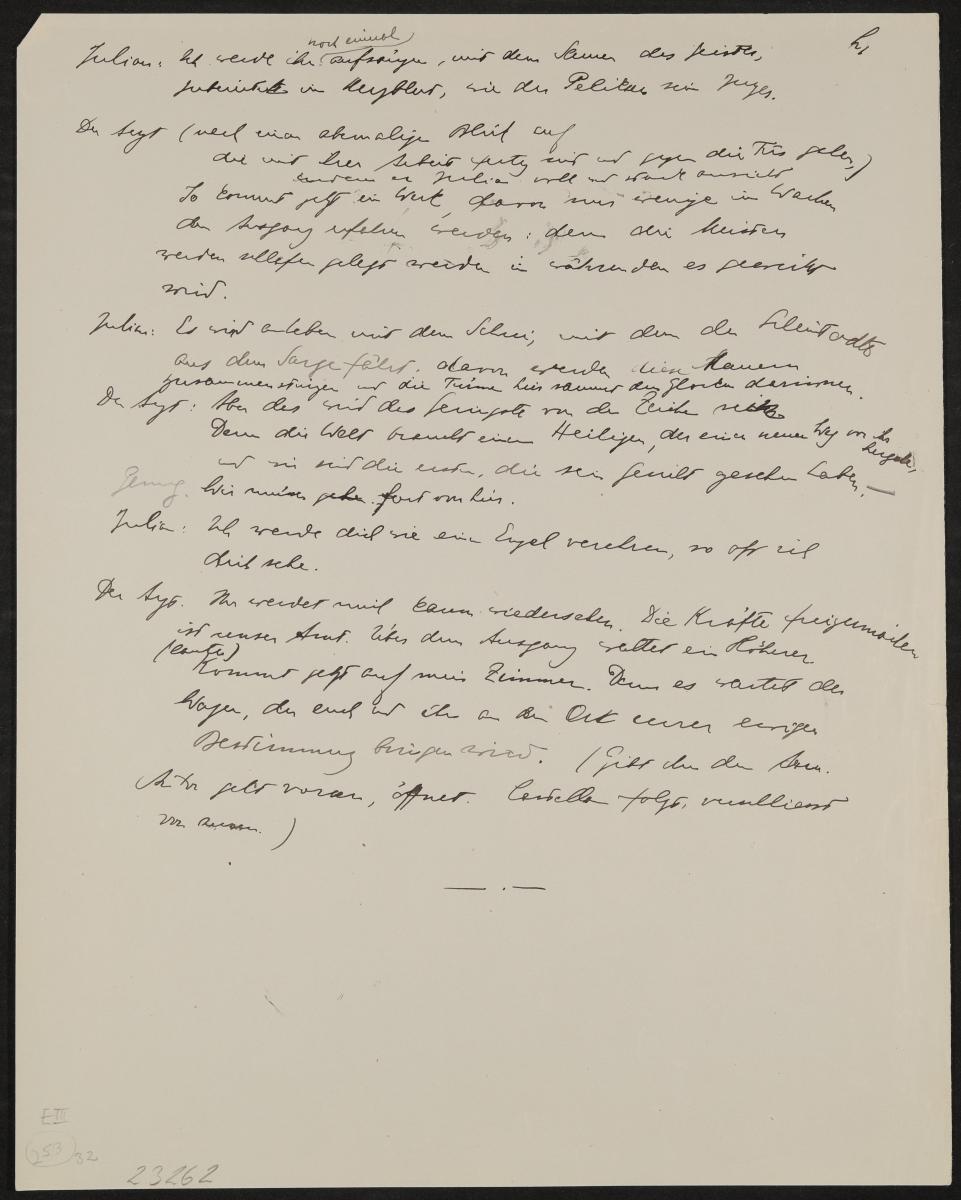 noch einmal
Julian: Ich werde ihn aufsäugen, mit dem Samen des Geistes,
im Herzblut, wie der Pelikan sein Junges.
Der Arzt (nach einem abermaligen Blick auf
die mit ihrer Arbeit fertig sind und gegen die Tür gehen,)
indem er Julian voll und stark ansieht
So kommt jetzt ein Werk, davon nur wenige im Wachen
den Ausgang erfahren werden: denn die Meisten
werden schlafen gelegt werden in währenden es gewirkt
wird.
Julian: Es wird anheben mit dem Schrei, mit dem der Scheintodte
aus dem Sarge fährt. davon werden diese Mauern
zusammenstürzen und die Türme hier sammt den Glocken
Der Arzt: Aber das wird das Geringste von den Zeichen sein
Denn die Welt braucht einen Heiligen, der einen neuen Weg vor ihr
hergehe,
und wir sind die ersten, die sein Gesicht gesehen haben. —
Genug. Wir müssen gehen. fort von hier.
Julian: Ich werde dich wie einen Engel verehren, so oft ich
dich sehe.
Der Arzt. Ihr werdet mich kaum wiedersehen. Die Kräfte freizumachen
ist unser Amt. Über dem Ausgang waltet ein Höherer
(lauter)
Kommt jetzt auf mein Zimmer. Denn es wartet der
Wagen, der euch und ihn an den Ort eurer ewigen
Bestimmung bringen wird. (Gibt ihm den Arm.
Anton geht voran, öffnet. Castellan folgt, verschliesst
von aussen.)
E III
253 32
23262